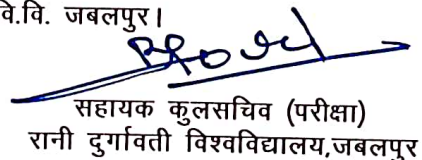 वि.वि. जबलपुर।
सहायक कुलसचिव (परीक्षा)
रानी दुर्गावती विश्वविद्यालय,जबलपुर